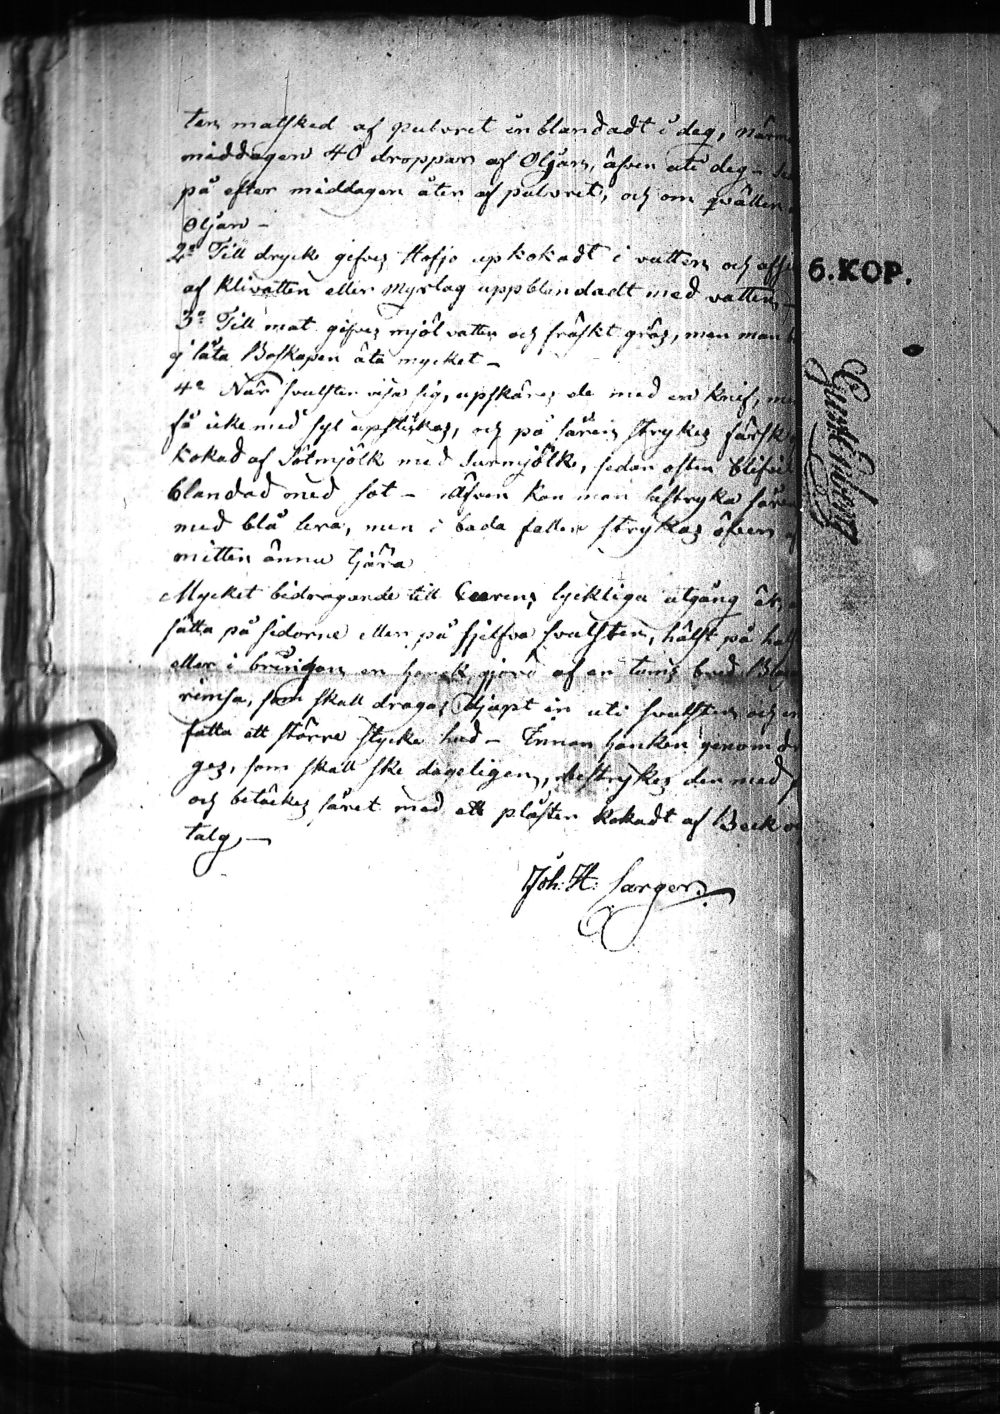 ten matsked af pulvret inblandadt i deg,
middagen 40 droppar af Oljan, äfven uti deg –
på efter middagen åter af pulvret, och om qvällen
Oljan –
2o Till dryck gifves uppkokadt i vatten och
af Klivatten eller Myrlag uppblandadt med vatten –
3o Till mat gifves mjölvatten och friskt gräs, men man
ej låta Boskapen äta mycket –
4o När svulster visa sig, upskäres de med en knif, men
få icke med syl upstickas, och på såren strykes färsk
kokad af Sötmjölk med Surmjölk, sedan osten blifvit
blandad med sot – Äfven kan man bestryka såren
med blå lera, men i båda fallen strykas öfver
mitten ännu tjära
Mycket bidragande till Curens lyckliga utgång är,
sätta på sidorne eller på sjelfva svulsten, hälst på
eller i bringan en hank gjord af en tums bred
rimsa, som skall dragas djupt in uti svulsten och
fatta ett större stycke hud – Innan hanken genom
ges, som skall ske dageligen, bestrykes den med
och betäckes såret med ett plåster kokadt af Beck
talg, –
Joh: H:
6. KOP.